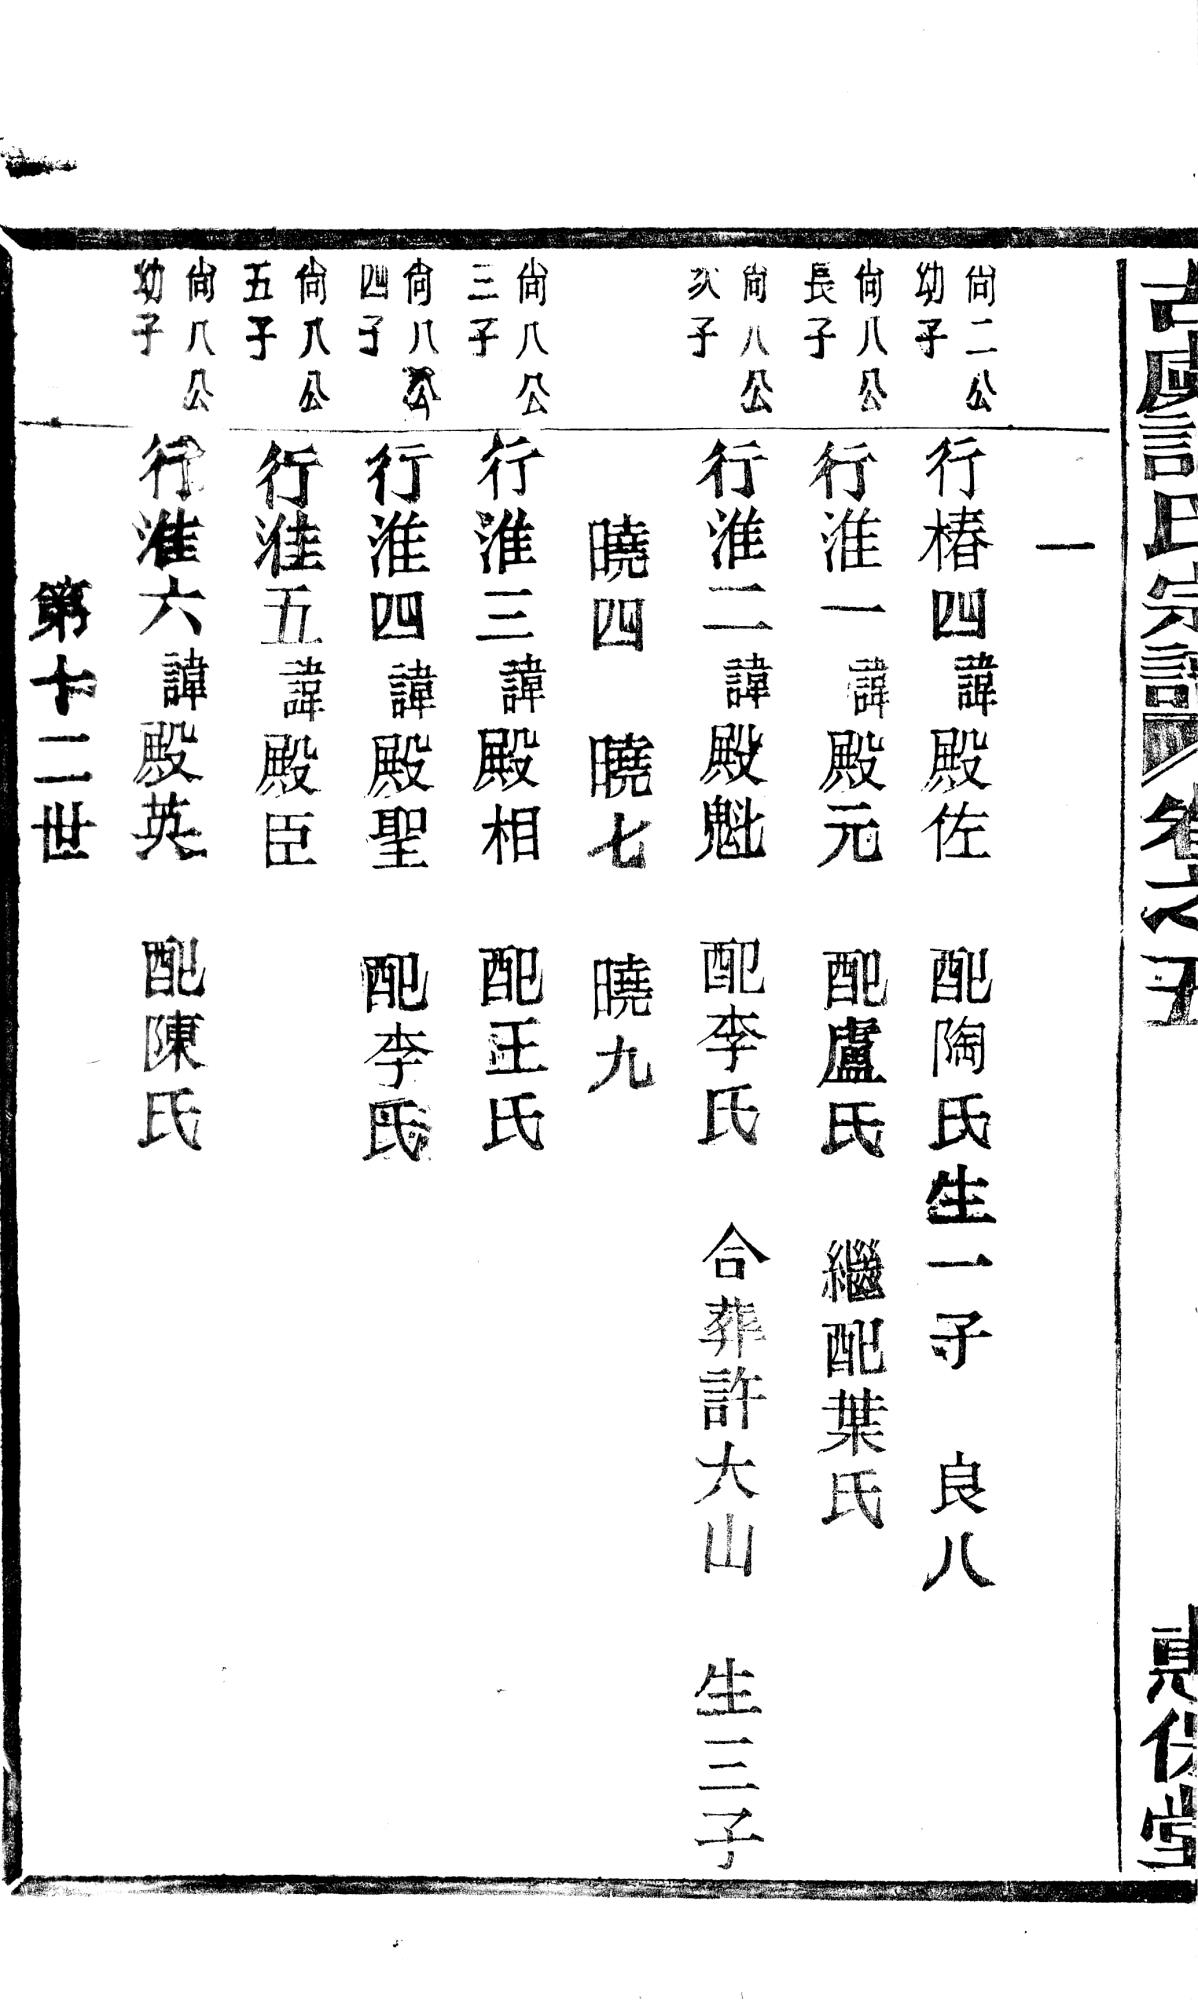 古虞許氏宗譜 卷之五
惠保堂
一
尙二公
幼子
行椿四諱殿佐 配陶氏生一子 良八
尙八公
長子
行淮一諱殿元 配盧氏 繼配葉氏
尙八公
次子
行淮二諱殿魁 配李氏 合葬許大山 生三子
曉四 曉七 曉九
尙八公
三子
行淮三諱殿相 配王氏
尙八公
四子
行淮四諱殿聖 配李氏
尙八公
五子
行淮五諱殿臣
尙八公
幼子
行淮六諱殿英 配陳氏
第十二世